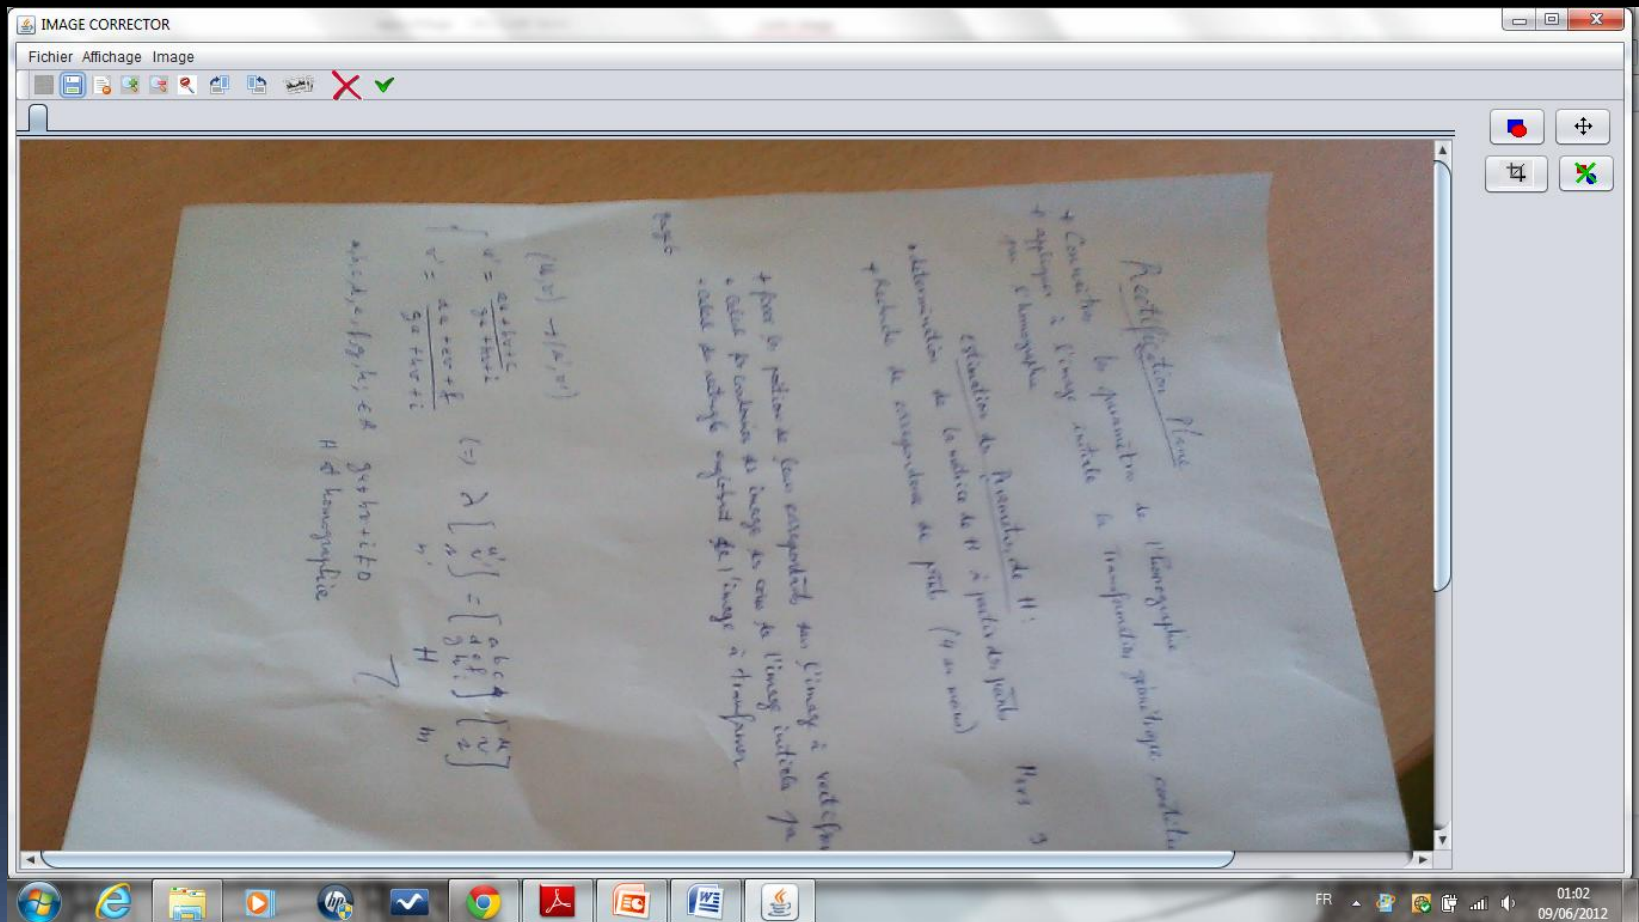 IMAGE CORRECTOR
Fichier Affichage Image
Rectification Plane
+ Connaître les paramètres de l'homographie
+ appliquer à l'image initiale la transformation géométrique
par l'homographie
Estimation des Paramètres de H :
• détermination de la matrice de H à partir des points
+ Recherche de correspondance de points (4 au moins)
+ fixer les position de leurs correspondants dans l'image à
+ calcul des coordonnées des image des coins de l'image initiale
- calcul du rectangle englobant de l'image à transformer
(u,v) → (u',v')
{ u' = au+bv+c / gu+hv+i
v' = du+ev+f / gu+hv+i
(=) λ [u' v'] = [a b c d e f g h i] [u v]
H m
a,b,c,d,e,f,g,h,i ∈ R gu+hv+i≠0
H homographie
FR
01:02
09/06/2012